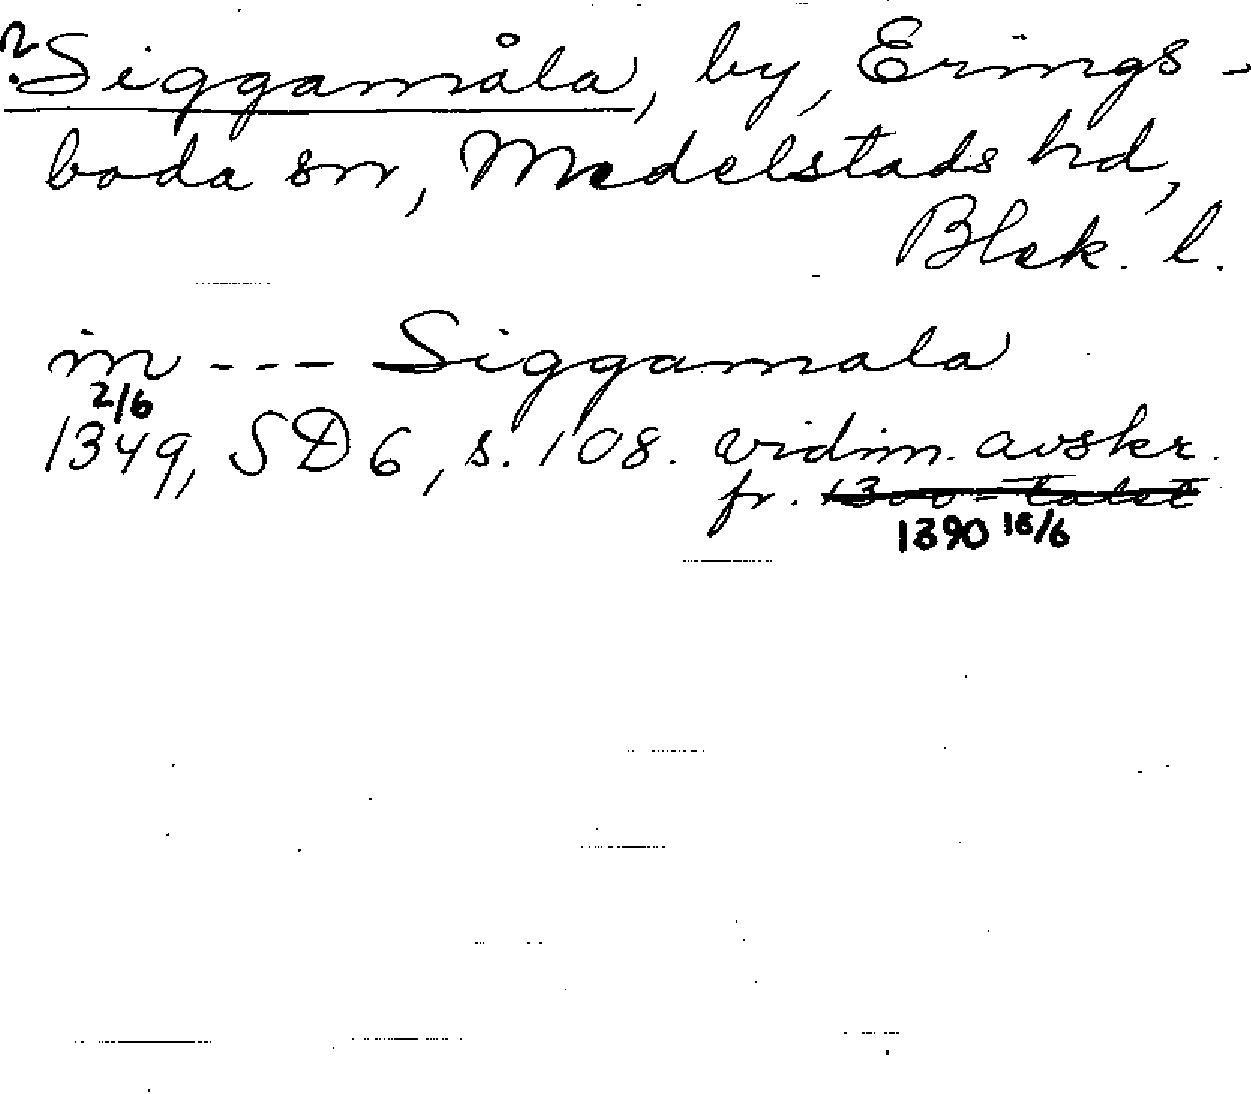 ? Siggamåla, by, Erings-
boda sn, Medelstads hd,
Blek. l.
in --- Siggamala
2/6
1349, SD 6, s. 108. vidim. avskr.
fr. 1300-talet
1390 18/6